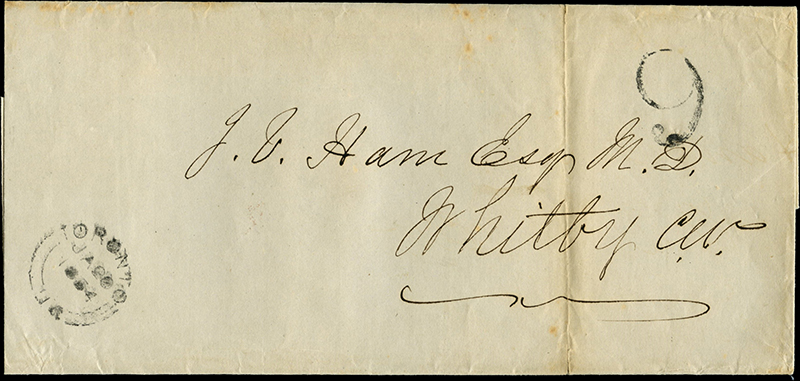 9
J. V. Ham Esqr M.D.
Whitby C.W.
TORONTO
JA 20
1854